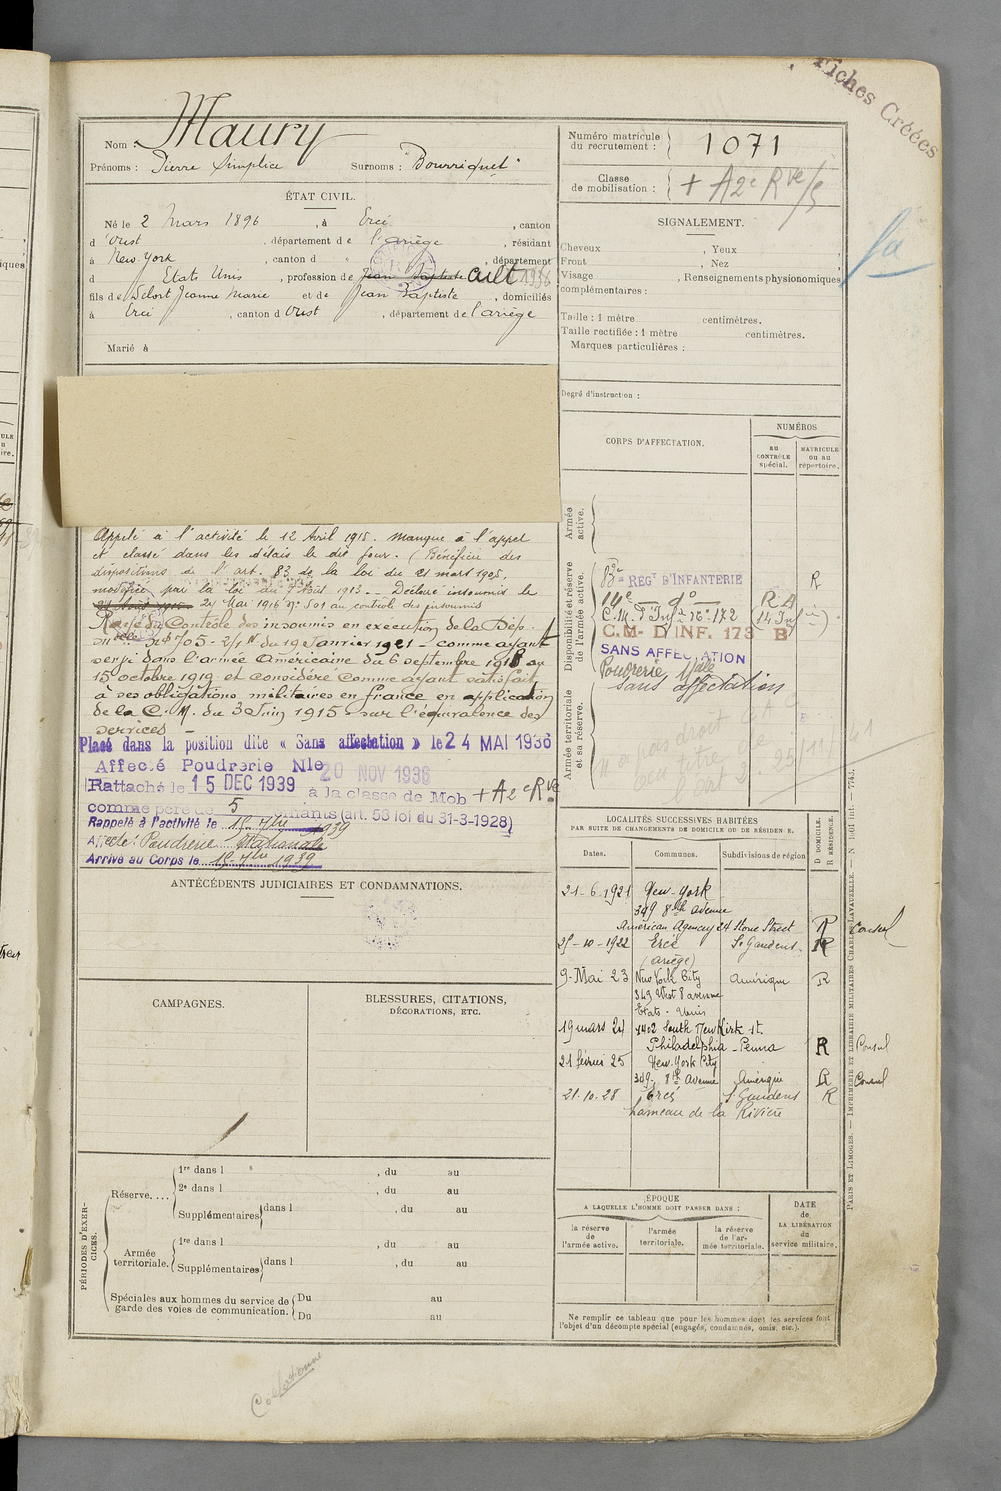 Fiches Créées
Nom : Maury
Prénoms : Pierre Simplice Surnoms : "Bourriquet"
Numéro matricule du recrutement : 1071
Classe de mobilisation : + A2e Rve/5
ÉTAT CIVIL.
Né le 2 Mars 1896, à Ercé, canton
d'Oust, département de l'Ariège, résidant
à New-York, canton d ", département
d Etats Unis, profession de Jean Baptiste cult 1936
fils de Delort Jeanne Marie et de Jean Baptiste, domiciliés
à Ercé, canton d'Oust, département de l'ariège
Marié à
SIGNALEMENT.
Cheveux , Yeux
Front , Nez
Visage , Renseignements physionomiques
complémentaires :
Taille : 1 mètre centimètres.
Taille rectifiée : 1 mètre centimètres.
Marques particulières :
Degré d'instruction :
CORPS D'AFFECTATION.
NUMÉROS
AU CONTRÔLE spécial.
MATRICULE OU AU répertoire.
Armée active.
Disponibilité et réserve de l'armée active.
83e REGt D'INFANTERIE R
14e d°
C.M. d'Infie 16e 172
C.M. D'INF. 173 B
SANS AFFECTATION
Poudrerie Nale
sans affectation
Armée territoriale et sa réserve.
Appelé à l'activité le 12 Avril 1915. Manque à l'appel
et classé dans les délais le dit jour. (Bénéficie des
dispositions de l'art. 83 de la loi du 21 mars 1905,
modifiée par la loi du 7 Août 1913 - Déclaré insoumis le
24 Mai 1916 n° 501 au contrôle des insoumis
Rayé du Contrôle des insoumis en exécution de la Dép.
du 19 Janvier 1921 - comme ayant
servi dans l'armée Américaine du 6 septembre 1918 au
15 octobre 1919 et considéré comme ayant satisfait
à ses obligations militaires en france en application
de la C. M. du 3 Juin 1915 - sur l'équivalence des
services -
Placé dans la position dite « Sans affectation » le 24 MAI 1936
Affecté Poudrerie Nle 20 NOV 1936
Rattaché le 15 DEC 1939 à la classe de Mob + A2e Rve
comme père de 5 enfants (art. 58 loi du 31-3-1928)
Rappelé à l'activité le 15 7bre 1939
Affecté : Poudrerie Nationale
Arrivé au Corps le 15 7bre 1939
ANTÉCÉDENTS JUDICIAIRES ET CONDAMNATIONS.
CAMPAGNES.
BLESSURES, CITATIONS, DÉCORATIONS, ETC.
LOCALITÉS SUCCESSIVES HABITÉES
PAR SUITE DE CHANGEMENTS DE DOMICILE OU DE RÉSIDENCE.
Dates. Communes. Subdivisions de région D DOMICILE. R RÉSIDENCE.
21-6-1921 New-York
349 8th avenue
American Agency 24 Stone Street R Consul
25-10-1922 Ercé St Gaudens R
(Ariège)
9 Mai 23 New York City Amérique R
343 West 8 avenue
Etats-Unis
19 mars 24 1402 South Newkirk St.
Philadelphia - Penna R Consul
21 février 25 New-York City
349, 8th Avenue Amérique R Consul
21.10.28 Ercé St Gaudens R
hameau de la Rivière
PÉRIODES D'EXERCICES.
Réserve....
1re dans l , du au
2e dans l , du au
Supplémentaires dans l , du au
Armée territoriale.
1re dans l , du au
Supplémentaires dans l , du au
Spéciales aux hommes du service de garde des voies de communication.
Du au
Du au
ÉPOQUE
A LAQUELLE L'HOMME DOIT PASSER DANS :
la réserve de l'armée active.
l'armée territoriale.
la réserve de l'armée territoriale.
DATE de LA LIBÉRATION du service militaire.
Ne remplir ce tableau que pour les hommes dont les services font
l'objet d'un décompte spécial (engagés, condamnés, omis, etc.).
PARIS ET LIMOGES. — IMPRIMERIE ET LIBRAIRIE MILITAIRES CHARLES-LAVAUZELLE.
Collationné